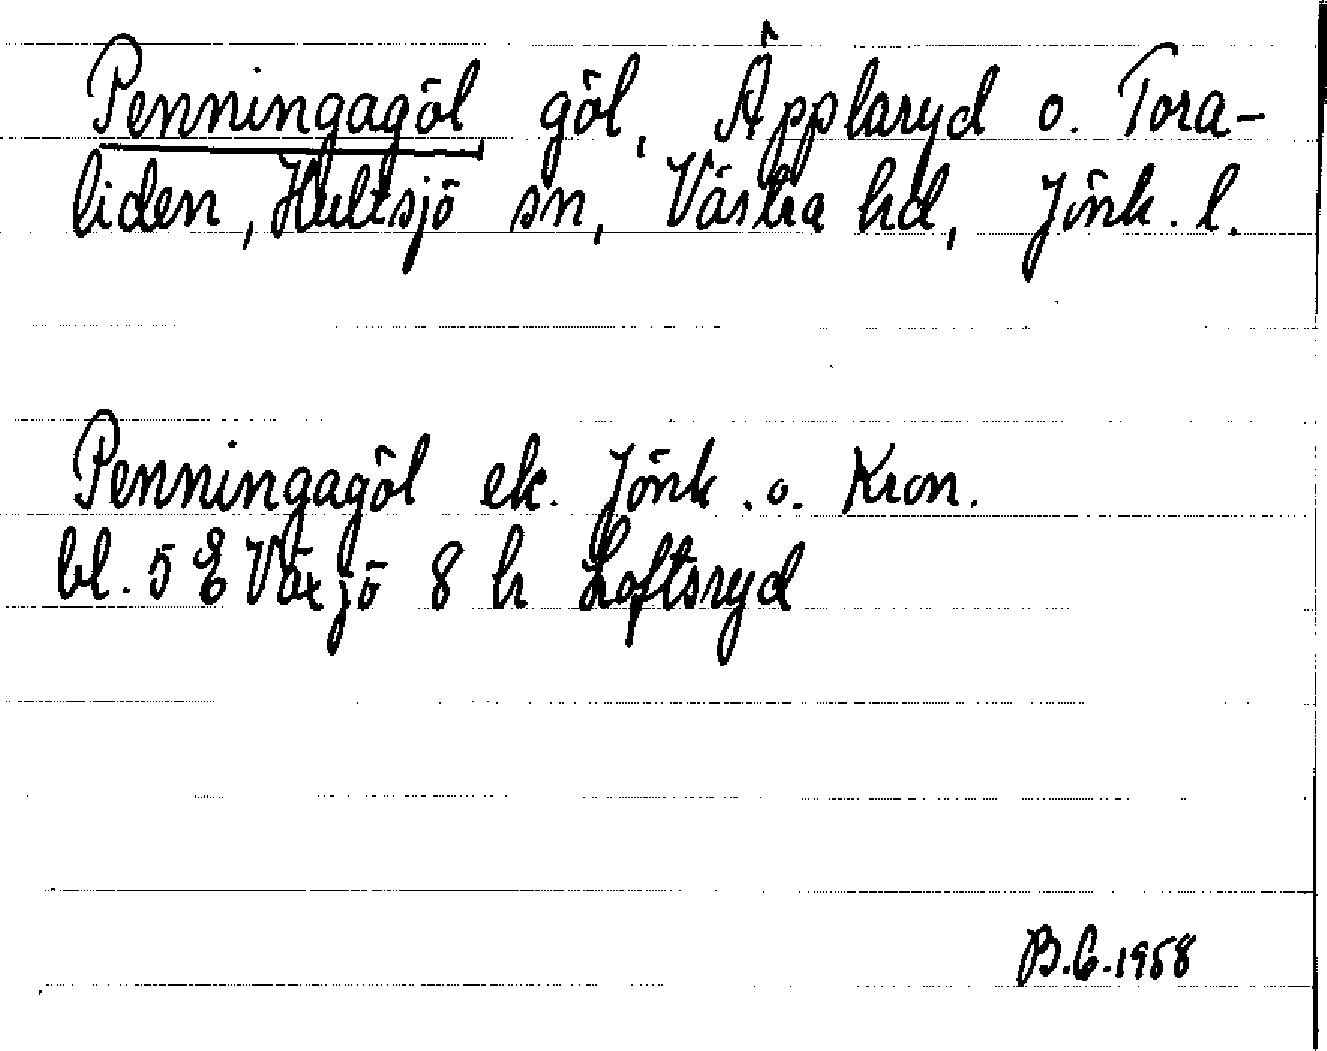 Penningagöl, göl, Äpplaryd o. Tora-
liden, Hultsjö sn, Västra hd, Jönk. l.
Penningagöl ek. Jönk. o. Kron.
bl. 5 E Växjö 8 h Loftsryd
B.G. 1958